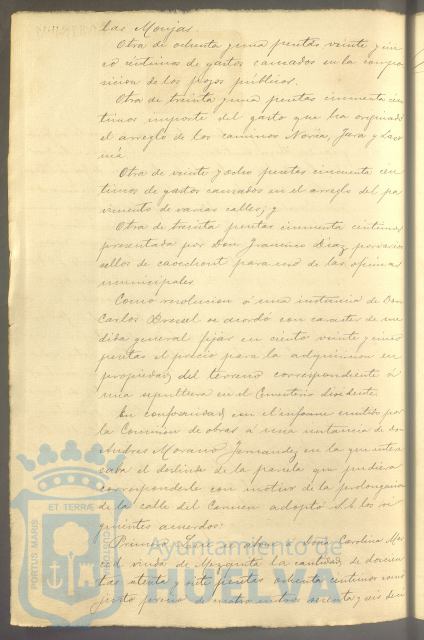 las Monjas.
Otra de ochenta y una pesetas veinte y cin
co céntimos de gastos causados en la compo
sicion de los pozos públicos.
Otra de treinta y una pesetas cincuenta cén
timos importe del gasto que ha originado
el arreglo de los caminos Noria, Jara y
Otra de veinte y ocho pesetas cincuenta cén
timos de gastos causados en el arreglo del pa
vimento de varias calles; y
Otra de treinta pesetas cincuenta céntimos
presentada por Don Francisco Diaz por varios
sellos de caoutchout para uso de las oficinas
municipales.
Como resolucion á una instancia de Don
Carlos se acordó con caracter de me
dida general fijar en ciento veinte y cinco
pesetas el precio para la adquisicion en
propiedad del terreno correspondiente á
una sepultura en el Cementerio disidente.
En conformidad con el informe emitido por
la Comision de obras á una instancia de don
Andres Morano Fernandez en la que intere
saba el deslinde de la parcela que pudiera
corresponderle con motivo de la prolongacion
de la calle del Carmen adoptó S. E. los si
guientes acuerdos:
Primero: Que se abone á Doña Carolina
viuda de Mezquita la cantidad de doscien
tas y siete pesetas ochenta centimos como
justo precio de metros sesenta y seis
PORTUS MARIS ET TERRAE CUSTODIA
Ayuntamiento de
HUELVA